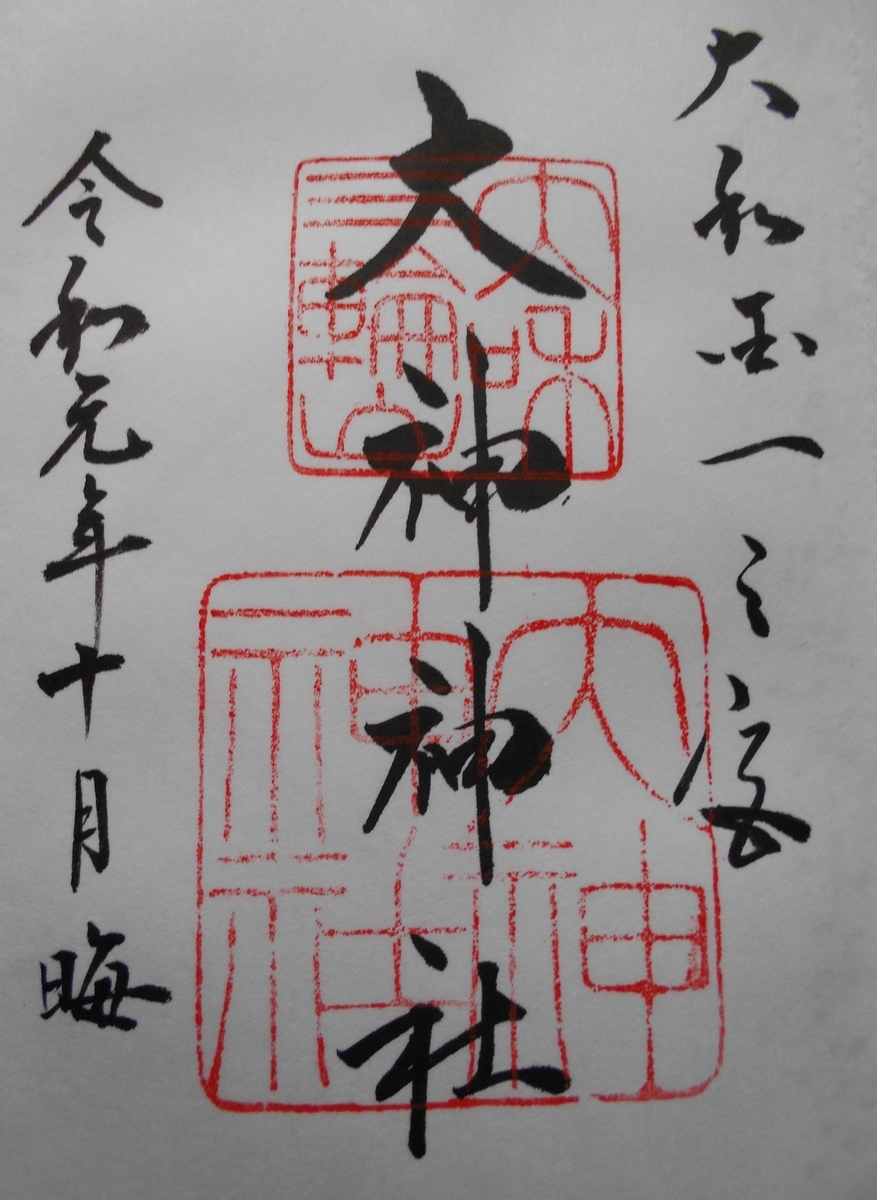 大和国一之宮
大和三輪山
大神神社
大神神社
令和元年十月晦